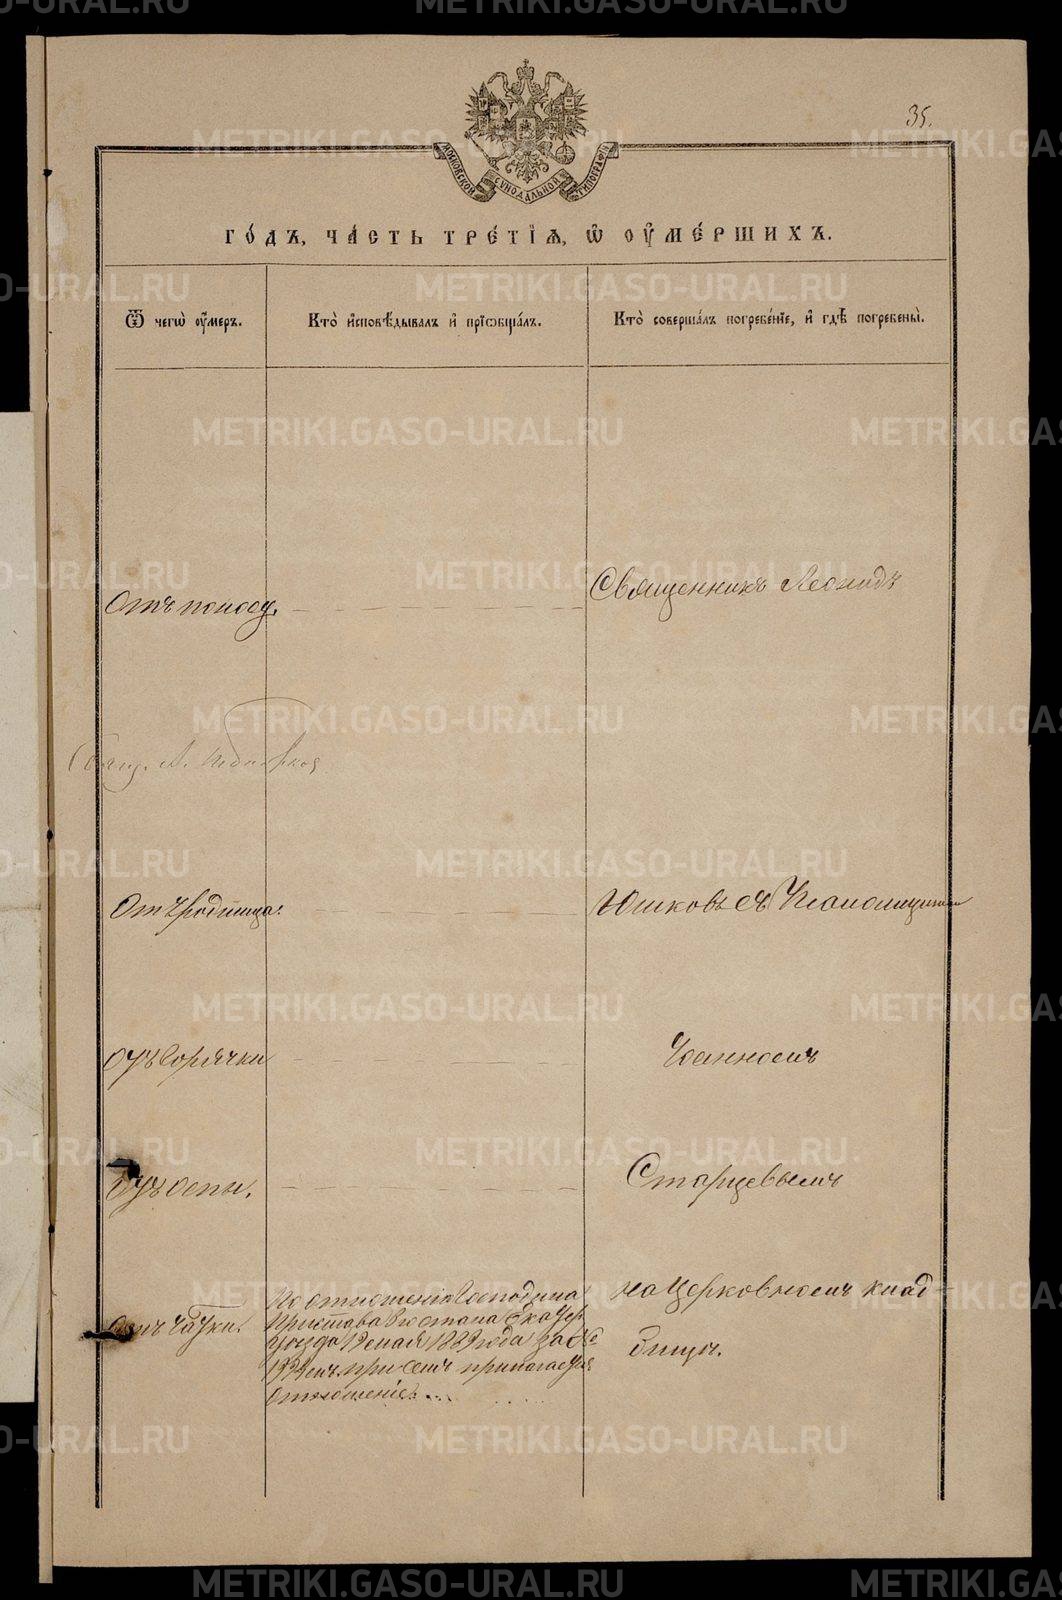 35.
МОСКОВСКОЙ СѴНОДАЛЬНОЙ ТИПОГРАФІИ
ГО́ДЪ, ЧА́СТЬ ТРЕ́ТІѦ, Ѡ҆ ОУ҆МЕ́РШИХЪ.
Ѿ чегѡ̀ оу҆́меръ.
Кто̀ и҆сповѣ́дывалъ и҆ прїѻбща́лъ.
Кто̀ соверша́лъ погребе́нїе, и҆ гдѣ̀ погребены̀.
Отъ поносу.
Священникъ Леонидъ
Свящ. Л.
Отъ родимца.
Юшковъ съ Псаломщикомъ
Отъ Горячки
Іоанномъ
Отъ Оспы.
Старцевымъ
Отъ Чатки.
По отношенію Господина
Пристава 2го стана Екатер
уезда 19 мая 1889 года за №
1924мъ. при семъ прилагается
отношеніе.
на Церковномъ клад-
бищѣ.
METRIKI.GASO-URAL.RU